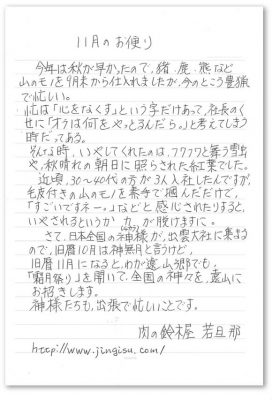 11月のお便り
今年は秋が早かったので、猪・鹿・熊など
山のモノを9月末から仕入れましたが、今のところ豊猟
で忙しい。
忙は「心をなくす」という字だけあって、社長のく
せに「オラは何をやっとるんだら。」と考えてしまう
時だってある。
そんな時、いやしてくれたのは、フワフワと舞う雪虫
や、秋晴れの朝日に照らされた紅葉でした。
近頃、30~40代の方が3人入社したんですが、
毛皮付きの山のモノを素手で掴んだだけど、
「すごいですネー。」などと感心されたりすると、
いやされるというか力が脱けますに。
さて、日本全国の神様が、出雲大社に集まる
ので、旧暦10月は神無月と言うけど、
旧暦11月になると、わが遠山郷でも、
「霜月祭り」を開いて、全国の神々を、遠山に
お招きします。
神様たちも、出張で忙しいことです。
肉の鈴木屋 若旦那
http://www.jingisu.com/